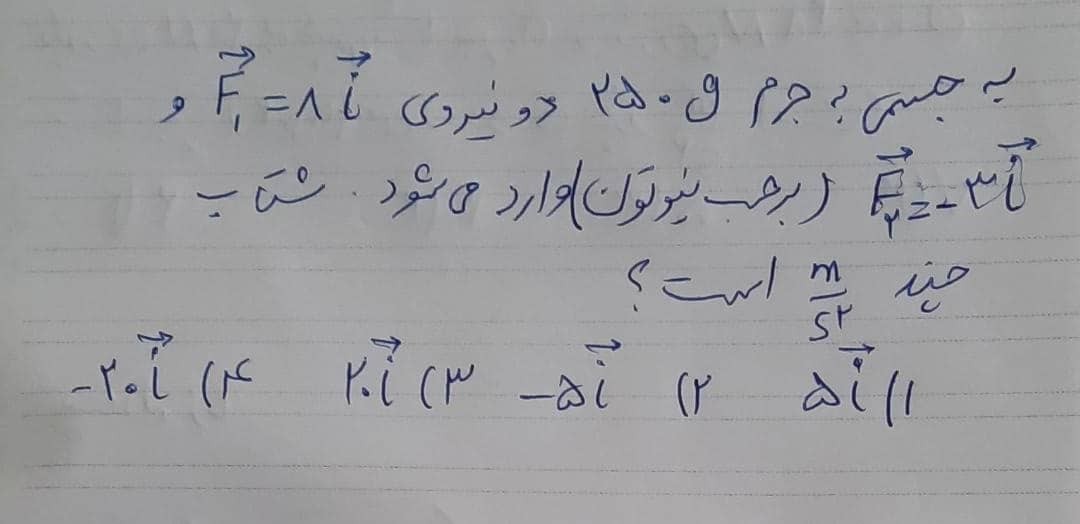 به جسمی به جرم ۲۵۰ g دو نیروی F⃗₁ = ۸ i⃗ و
F⃗₂ = -۳ i⃗ (برحسب نیوتون) وارد می‌شود. شتاب
چند m/s² است؟
۱) ۵ i⃗ ۲) -۵ i⃗ ۳) ۲۰ i⃗ ۴) -۲۰ i⃗